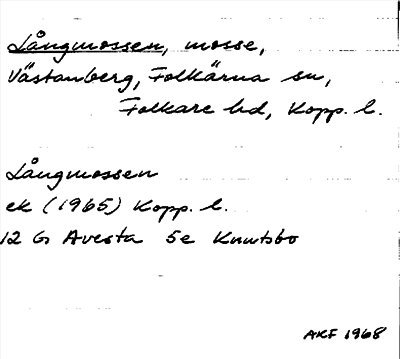 Långmossen, mosse,
Västanberg, Folkärna sn,
Folkare hd, Kopp. l.
Långmossen
ek (1965) Kopp. l.
12 G Avesta 5e Knutsbo
AKF 1968